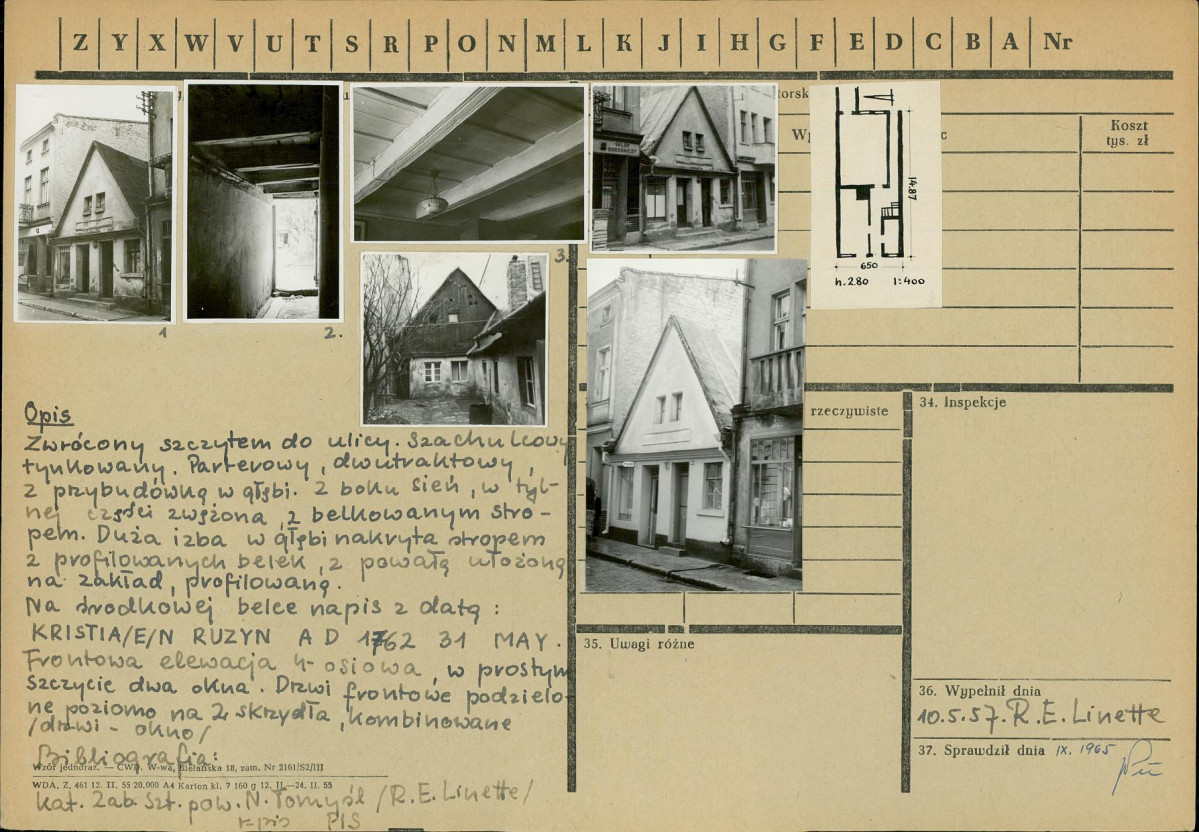 Z Y X W V U T S R P O N M L K J I H G F E D C B A Nr
torsk
Wy
c
Koszt
tys. zł
SKLEP
14.87
650
h.280 1:400
1
2.
3.
Opis
Zwrócony szczytem do ulicy. Szachulcowy
tynkowany. Parterowy, dwutraktowy,
z przybudówką w głębi. Z boku sień, w tyl-
nej części zwężona, z belkowanym stro-
pem. Duża izba w głębi nakryta stropem
z profilowanych belek, z powałą ułożoną
na zakład, profilowaną.
Na środkowej belce napis z datą:
KRISTIA/E/N RUZYN A D 1762 31 MAY.
Frontowa elewacja 4-osiowa, w prostym
szczycie dwa okna. Drzwi frontowe podzielo-
ne poziomo na 2 skrzydła, kombinowane
/drzwi - okno/
Bibliografia:
Wzór jednoraz. — CWD. W-wa, Bielańska 18, zam. Nr 2161/S2/III
WDA. Z. 461 12. II. 55 20.000 A4 Karton kl. 7 160 g 12. II.—24. II. 55
Kat. Zab. Szt. pow. N. Tomyśl /R.E. Linette/
r-pis PIS
rzeczywiste
34. Inspekcje
35. Uwagi różne
36. Wypełnił dnia
10.5.57. R.E. Linette
37. Sprawdził dnia IX. 1965